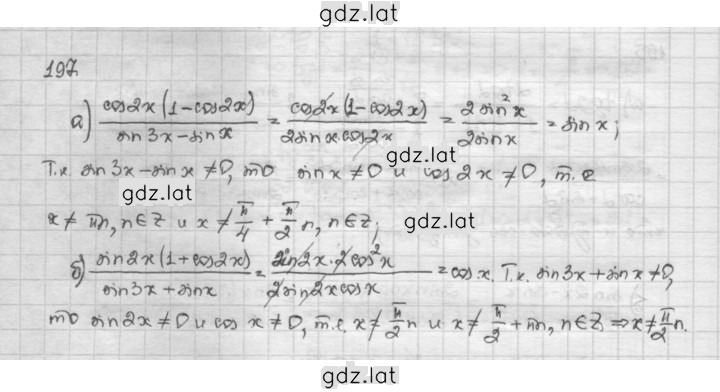 gdz.lat
197.
а) cos2x(1-cos2x)/sin3x-sinx = cos2x(1-cos2x)/2sinx·cos2x = 2sin²x/2sinx = sinx;
gdz.lat
Т.к. sin3x-sinx≠0, то sinx≠0 и cos2x≠0, т.е
gdz.lat
gdz.lat
x≠πn, n∈Z и x≠π/4+π/2n, n∈Z;
б) sin2x(1+cos2x)/sin3x+sinx = sin2x·2cos²x/2sin2xcosx = cosx. Т.к. sin3x+sinx≠0,
то sin2x≠0 и cos x≠0, т.е. x≠π/2n и x≠π/2+πn, n∈Z ⇒ x≠π/2n.
gdz.lat